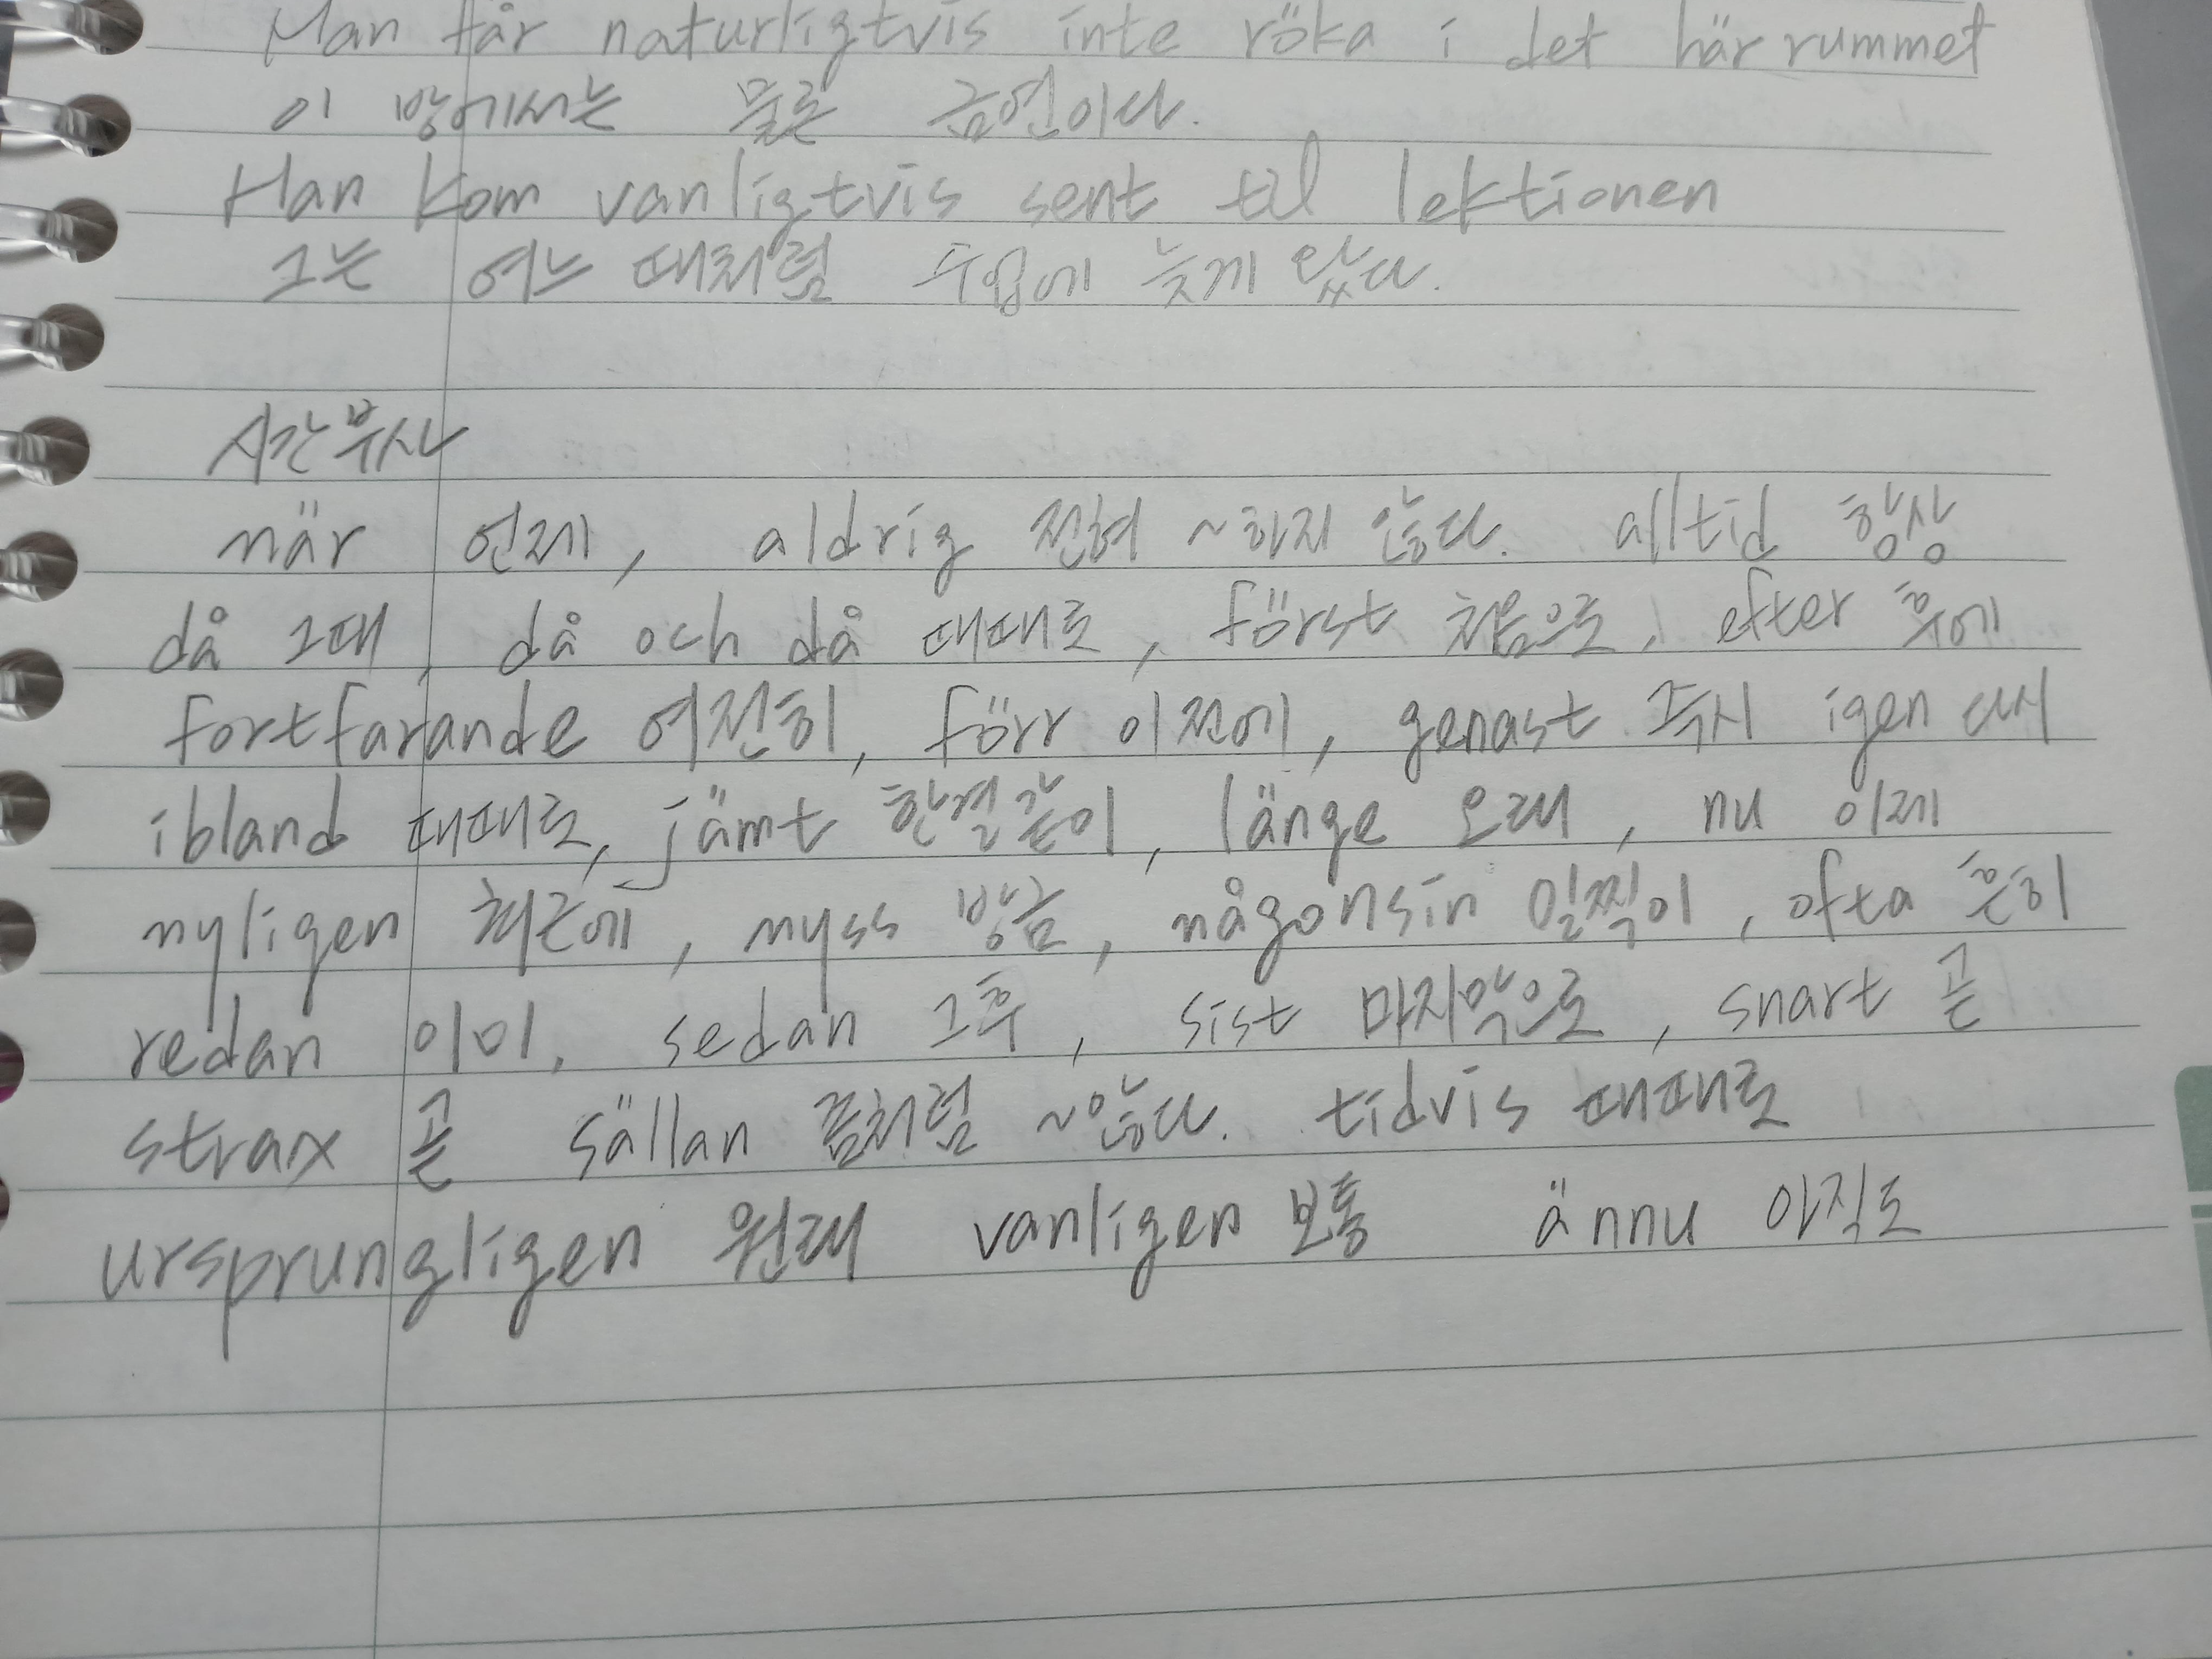 Man får naturligtvis inte röka i det här rummet
이 방에서는 물론 금연이다.
Han kom vanligtvis sent til lektionen
그는 여느 때처럼 수업에 늦게 왔다.
시간부사
när 언제, aldrig 전혀 ~하지 않다. alltid 항상
då 그때, då och då 때때로, först 처음으로, efter 후에
fortfarande 여전히, förr 이전에, genast 즉시 igen 다시
ibland 때때로, jämt 한결같이, länge 오래, nu 이제
nyligen 최근에, nyss 방금, någonsin 일찍이, ofta 흔히
redan 이미, sedan 그후, sist 마지막으로, snart 곧
strax 곧 sällan 좀처럼 ~않다. tidvis 때때로
ursprungligen 원래 vanligen 보통 ännu 아직도